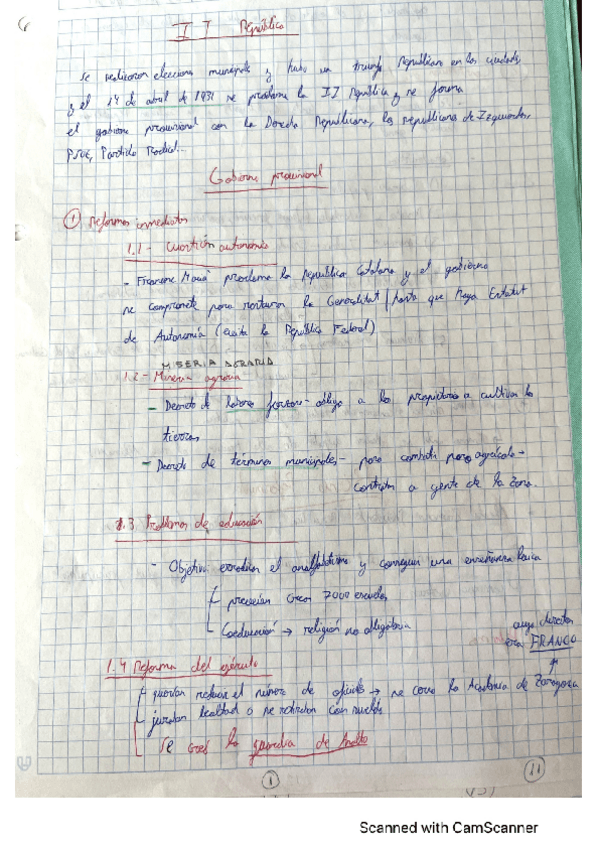 II República
Se realizaron elecciones municipales y hubo un triunfo republicano en las ciudades
y el 14 de abril de 1931 se proclama la II República y se forma
el gobierno provisional con la Derecha Republicana, los republicanos de Izquierdas,
PSOE, Partido Radical...
Gobierno provisional
1 Reformas inmediatas
1.1- Cuestión autonomía
- Francesc Macià proclama la República Catalana y el gobierno
se compromete para restaurar la Generalitat hasta que haya Estatut
de Autonomía (evita la República Federal)
MISERIA AGRARIA
1.2- Miseria agraria
- Decreto de laboreo forzoso - obliga a los propietarios a cultivar las
tierras
- Decreto de términos municipales - para combatir paro agrícola -
contratar a gente de la zona.
1.3 Problemas de educación
- Objetivo erradicar el analfabetismo y conseguir una enseñanza laica
preveían crear 7000 escuelas
Coeducación → religión no obligatoria
cuyo director
era FRANCO
1.4 Reforma del ejército
querían reducir el número de oficiales → se cerró la Academia de Zaragoza
juraban lealtad o se retiraban con sueldo
Se creó la guardia de Asalto
1
11
Scanned with CamScanner